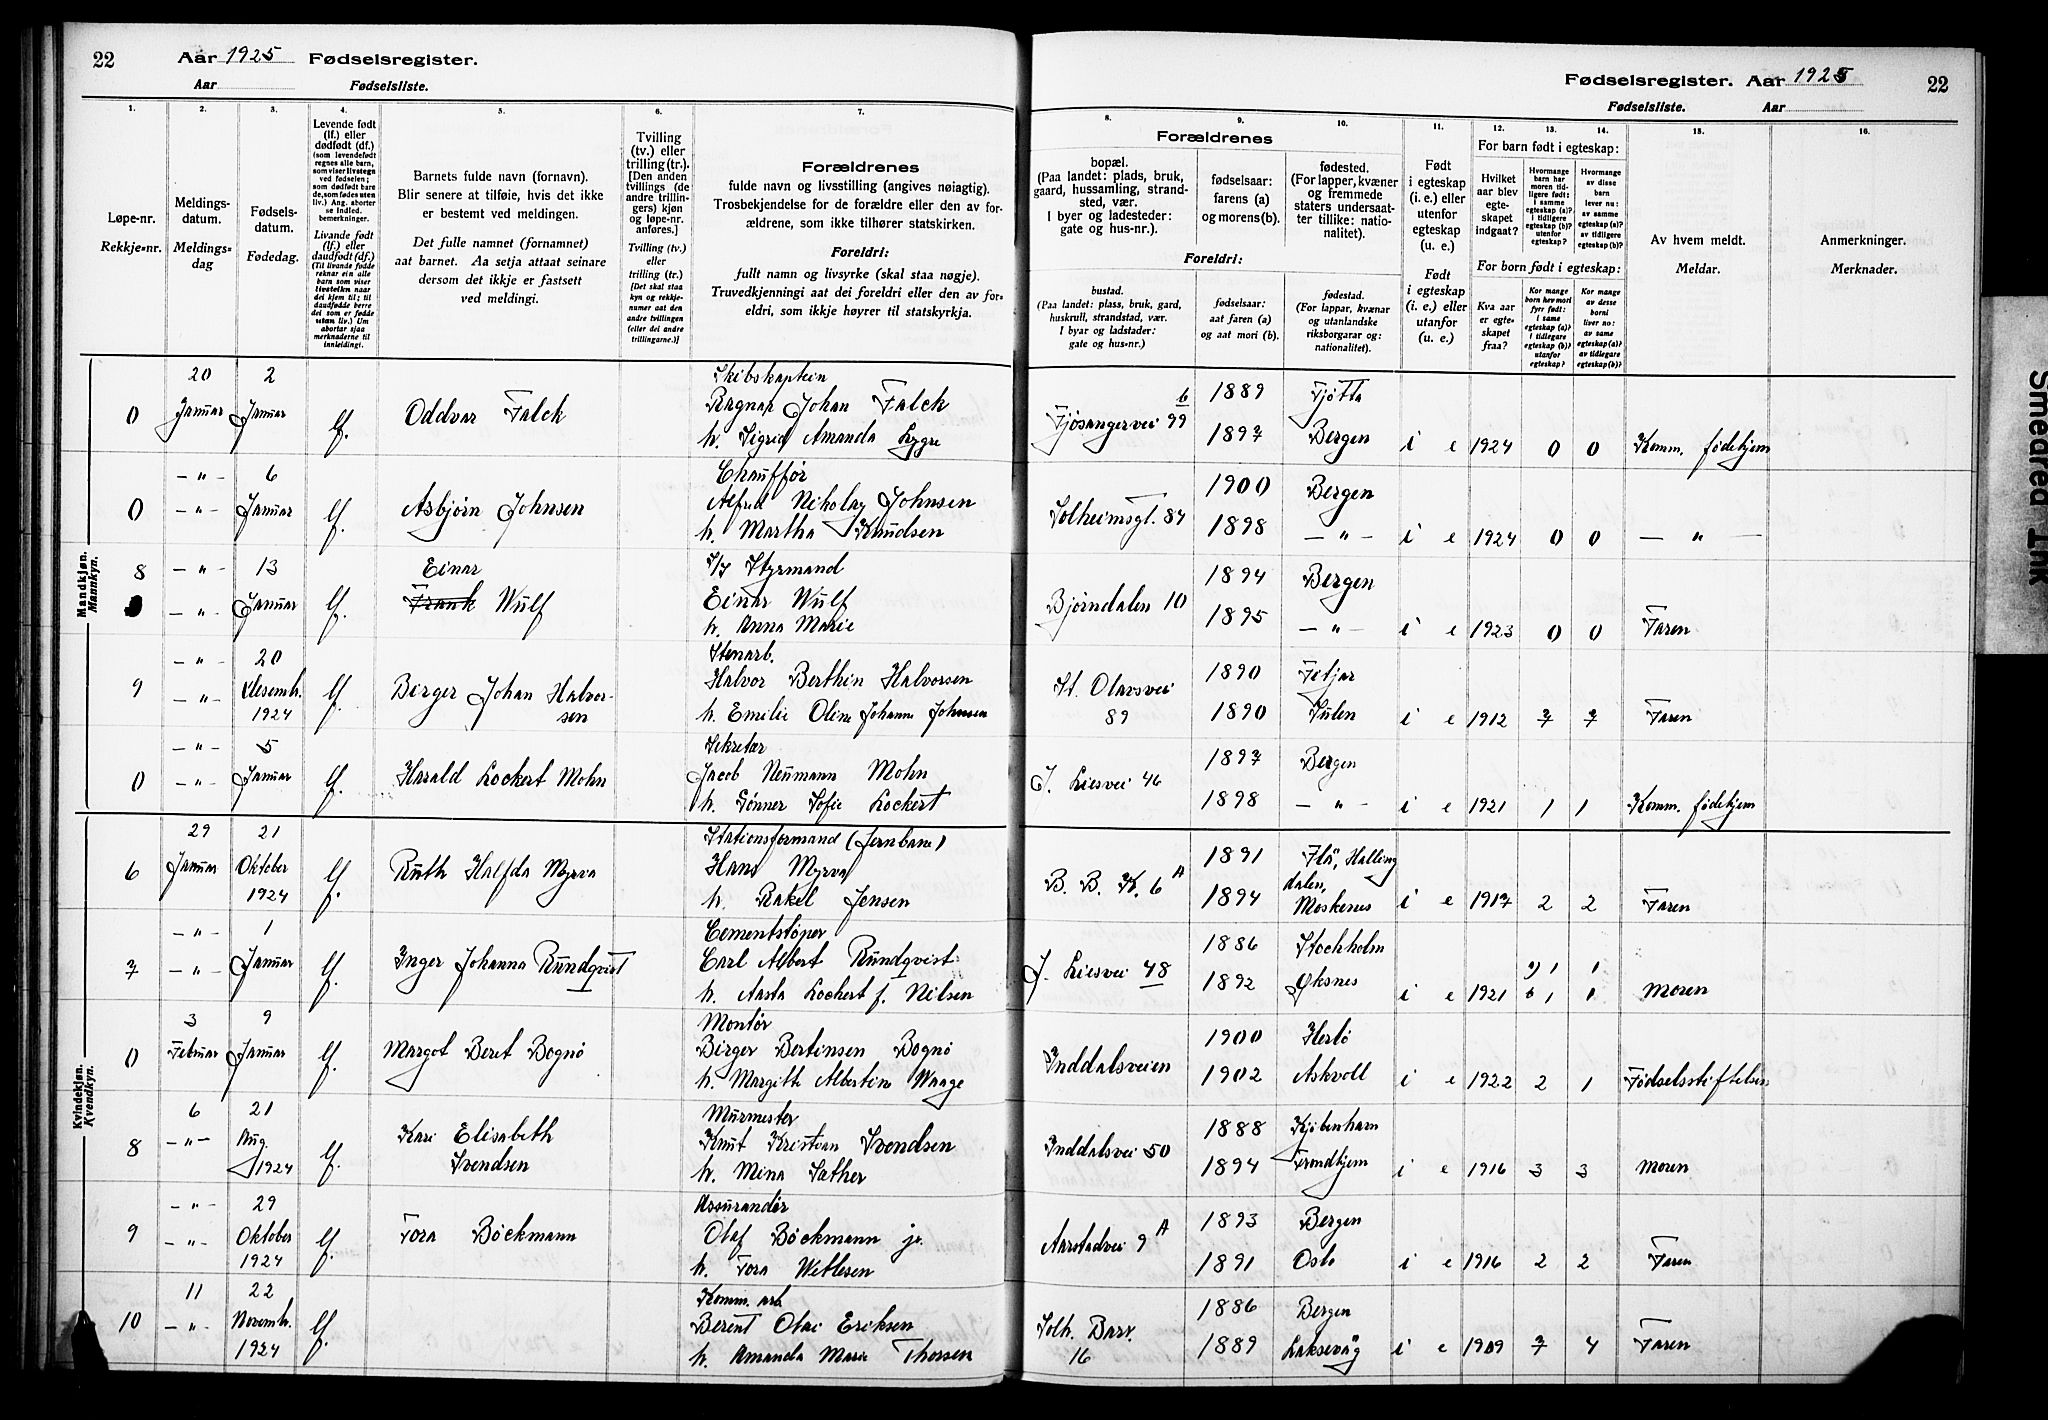 22 Aar 1925 Fødselsregister.
Aar Fødselsliste.
Fødselsregister. Aar 1925 22
Fødselsliste. Aar
1. 2. 3. 4. 5. 6. 7. 8. 9. 10. 11. 12. 13. 14. 15. 16.
Løpe-nr.
Rekkje-nr.
Meldings-
datum.
Meldings-
dag
Fødsels-
datum.
Fødedag.
Levende født
(lf.) eller
dødfødt (df.)
(som levendefødt
regnes alle barn,
som viser livstegn
ved fødselen;
som dødfødt bare
de, som fødes uten
liv.) Ang. aborter
se indled.
bemerkninger.
Livande født
(lf.) eller
daudfødt (df.)
(Til livande fødde
reknar ein alle
barn som viser
livsteikn naar
dei kjem til; til
daudfødde berre
dei som er fødde
utan liv.) Um
abortar sjaa
merknaderne til
innleidingi.
Barnets fulde navn (fornavn).
Blir senere at tilføie, hvis det ikke
er bestemt ved meldingen.
Det fulle namnet (fornamnet)
aat barnet. Aa setja attaat seinare
dersom det ikkje er fastsett
ved meldingi.
Tvilling
(tv.) eller
trilling (tr.).
[Den anden
tvillings (de
andre trillin-
gers) kjøn
og løpe-nr.
anføres.]
Tvilling (tv.)
eller
trilling (tr.)
[Det skal staa
kyn og rekkje-
numer aat den
andre tvillingen
(eller dei andre
trillingarne.)]
Forældrenes
fulde navn og livsstilling (angives nøiagtig).
Trosbekjendelse for de forældre eller den av for-
ældrene, som ikke tilhører statskirken.
Foreldri:
fullt namn og livsyrke (skal staa nøgje).
Truvedkjenningi aat dei foreldri eller den av for-
eldri, som ikkje høyrer til statskyrkja.
Forældrenes
bopæl.
(Paa landet: plads, bruk,
gaard, hussamling, strand-
sted, vær.
I byer og ladesteder:
gate og hus-nr.).
fødselsaar:
farens (a)
og morens (b).
fødested.
(For lapper, kvæner
og fremmede
staters undersaat-
ter tillike: natio-
nalitet).
Foreldri:
bustad.
(Paa landet: plass, bruk, gard,
huskrull, strandstad, vær.
I byar og ladstader:
gate og hus-nr.)
fødselsaar:
aat faren (a)
og aat mori (b).
fødestad.
(For lappar, kvænar
og utanlandske
riksborgarar og:
nationalitet).
Født
i egteskap
(i. e.) eller
utenfor
egteskap
(u. e.)
Født
i egteskap
(i. e.) eller
utanfor
(u. e.)
For barn født i egteskap:
Hvilket
aar blev
egte-
skapet
indgaat?
Hvormange
barn har
moren tid-
ligere født:
i samme
egteskap (a)?
i tidligere
egteskap (b)?
utenfor
egteskap?
Hvormange
av disse
barn
lever nu:
av samme
egteskap (a)?
av tidligere
egteskap (b)?
For born født i egteskap:
Kva aar
er egte-
skapet
fraa?
Kor mange
born hev mori
fyrr født:
i same
egteskap (a)?
i tidlegare
egteskap (b)?
utanfor
egteskap?
Kor mange
av desse
borni
liver no:
av same
egteskap (a)?
av tidlegare
egteskap (b)?
Av hvem meldt.
Meldar.
Anmerkninger.
Merknader.
Mandkjøn.
Mannkyn.
20 2 Skibskaptein
0 Januar Januar lf. Oddvar Falck Ragnar Johan Falck
h. Sigrid Amanda Lygre
Fjøsangervei 99 b 1889 Tjøtta
1897 Bergen i e 1924 0 0 Komm. fødehjem
— " — 6 Chauffør
0 — " — Januar lf. Asbjørn Johnsen Alfred Nikolay Johnsen
h. Martha Knudsen
Solheimsgt. 87 1900 Bergen
1898 — " — i e 1924 0 0 — " —
8 — " — 13 Einar S/S Styrmand
— " — Januar lf. Frank Wulf Einar Wulf
h. Anna Marie
Bjørndalen 10 1894 Bergen
1895 — " — i e 1923 0 0 Faren
— " — 20 Stenarb.
9 — " — Desemb. lf. Birger Johan Halvor- Halvor Berthin Halvorsen
1924 sen h. Emilie Oline Johanne Johnsen
St. Olavsvei 1890 Fitjar
89 1890 Sulen i e 1912 7 7 Faren
— " — 5 Sekretær
0 — " — Januar lf. Harald Lockert Mohn Jacob Neumann Mohn
h. Gønner Sofie Lockert
J. Liesvei 46 1897 Bergen
1898 — " — i e 1921 1 1 Komm. fødehjem
Kvindekjøn.
Kvendkyn.
29 21 Stationsformand (Jernbane)
6 Januar Oktober lf. Ruth Halfda Myrva Hans Myrva
1924 h. Rakel Jensen
B. B. K. 6 A 1891 Flå, Halling
dalen,
1894 Moskenes i e 1917 2 2 Faren
— " — 1 Cementstøper
7 — " — Januar lf. Inger Johanna Rundqvist Carl Albert Rundqvist
h. Aasta Lockert f. Nilsen
J. Liesvei 48 1886 Stockholm
1892 Øksnes i e 1921 a) 1 1
b 1 1 Moren
3 9 Montør
0 Februar Januar lf. Margot Beret Bognø Birger Bertinsen Bognø
h. Margith Albertine Waage
Inddalsveien 1900 Herlø
1902 Askvoll i e 1922 2 1 Fødselsstiftelsen
6 21 Murmester
8 — " — Aug. lf. Kari Elisabeth Knut Kristian Svendsen
1924 Svendsen h. Mina Sæther
Inddalsvei 50 1888 Kjøbenhavn
1894 Trondhjem i e 1916 3 3 Moren
— " — 29 Assurandør
9 — " — Oktober lf. Tora Bøckmann Olaf Bøckmann jr.
1924 h. Tora Wetlesen
Aarstadvei 9 A 1893 Bergen
1891 Oslo i e 1916 2 2 Faren
11 22 Komm. arb.
10 — " — Novemb. lf. Berent Olai Eriksen
1924 h. Amanda Marie Thorsen
Solh. Barr. 1886 Bergen
16 1889 Laksevåg i e 1909 7 4 Faren
Smeared Ink